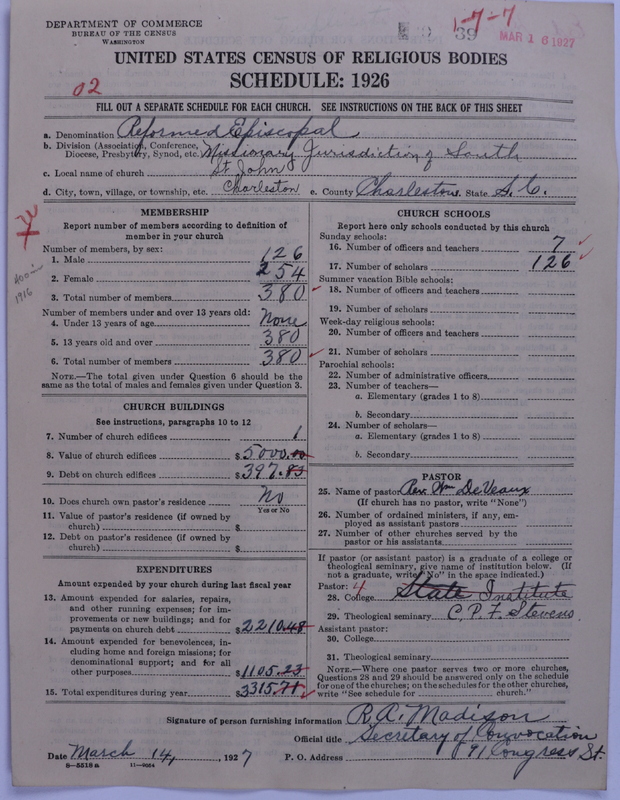 DEPARTMENT OF COMMERCE
BUREAU OF THE CENSUS
WASHINGTON
39
1-7-7
MAR 16 1927
UNITED STATES CENSUS OF RELIGIOUS BODIES
SCHEDULE: 1926
02
FILL OUT A SEPARATE SCHEDULE FOR EACH CHURCH. SEE INSTRUCTIONS ON THE BACK OF THIS SHEET
a. Denomination Reformed Episcopal
b. Division (Association, Conference, Diocese, Presbytry, Synod, etc. Missionary Jurisdiction of South
c. Local name of church St John
d. City, town, village, or township, etc. Charleston e. County Charleston State S.C.
MEMBERSHIP
Report number of members according to definition of
member in your church
Number of members, by sex:
1. Male 126
2. Female 254
3. Total number of members 380
400
1916
Number of members under and over 13 years old:
4. Under 13 years of age None
5. 13 years old and over 380
6. Total number of members 380
NOTE.—The total given under Question 6 should be the
same as the total of males and females given under Question 3.
CHURCH BUILDINGS
See instructions, paragraphs 10 to 12
7. Number of church edifices 1
8. Value of church edifices $5000.00
9. Debt on church edifices $397.83
10. Does church own pastor's residence No
Yes or No
11. Value of pastor's residence (if owned by
church) $
12. Debt on pastor's residence (if owned by
church) $
EXPENDITURES
Amount expended by church during last fiscal year
13. Amount expended for salaries, repairs,
and other running expenses; for im-
provements or new buildings; and for
payments on church debt $2210.48
14. Amount expended for benevolences, in-
cluding home and foreign missions; for
denominational support; and for all
other purposes $1105.23
15. Total expenditures during year $3315.71
CHURCH SCHOOLS
Report here only schools conducted by this church
Sunday schools:
16. Number of officers and teachers 7
17. Number of scholars 126
Summer vacation Bible schools:
18. Number of officers and teachers
19. Number of scholars
Week-day religious schools:
20. Number of officers and teachers
21. Number of scholars
Parochial schools:
22. Number of administrative officers
23. Number of teachers—
a. Elementary (grades 1 to 8)
b. Secondary
24. Number of scholars—
a. Elementary (grades 1 to 8)
b. Secondary
PASTOR
25. Name of pastor Rev. Wm DeVeaux
(If church has no pastor, write "None")
26. Number of ordained ministers, if any, em-
ployed as assistant pastors
27. Number of other churches served by the
pastor or his assistants
If pastor (or assistant pastor) is a graduate of a college or
theological seminary, give name of institution below. (If
not a graduate, write "No" in the space indicated.)
Pastor: 4
28. College State Institute
29. Theological seminary C. P. F. Stevens
Assistant pastor:
30. College
31. Theological seminary
NOTE.—Where one pastor serves two or more churches,
Questions 28 and 29 should be answered only on the schedule
for one of the churches; on the schedules for the other churches,
write "See schedule for church."
Signature of person furnishing information R. A. Madison
Official title Secretary of Convocation
Date March 14, 1927 P. O. Address 91 Congress St.
8-5518a 11-9054